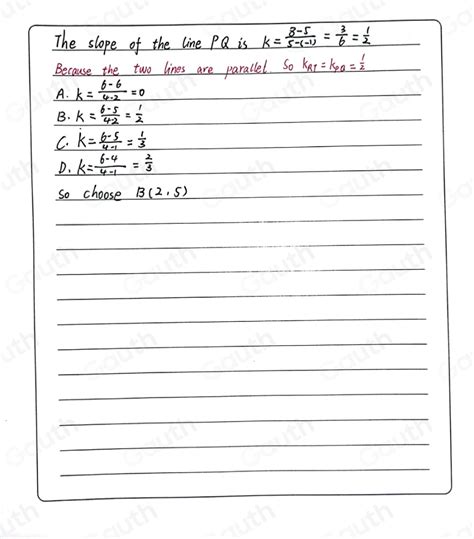 The slope of the line PQ is k = \frac{8-5}{5-(-1)} = \frac{3}{6} = \frac{1}{2}
Because the two lines are parallel. So k_{RT} = k_{PQ} = \frac{1}{2}
A. k = \frac{6-6}{4-2} = 0
B. k = \frac{6-5}{4-2} = \frac{1}{2}
C. k = \frac{6-5}{4-1} = \frac{1}{3}
D. k = \frac{6-4}{4-1} = \frac{2}{3}
So choose B(2,5)
Gauth